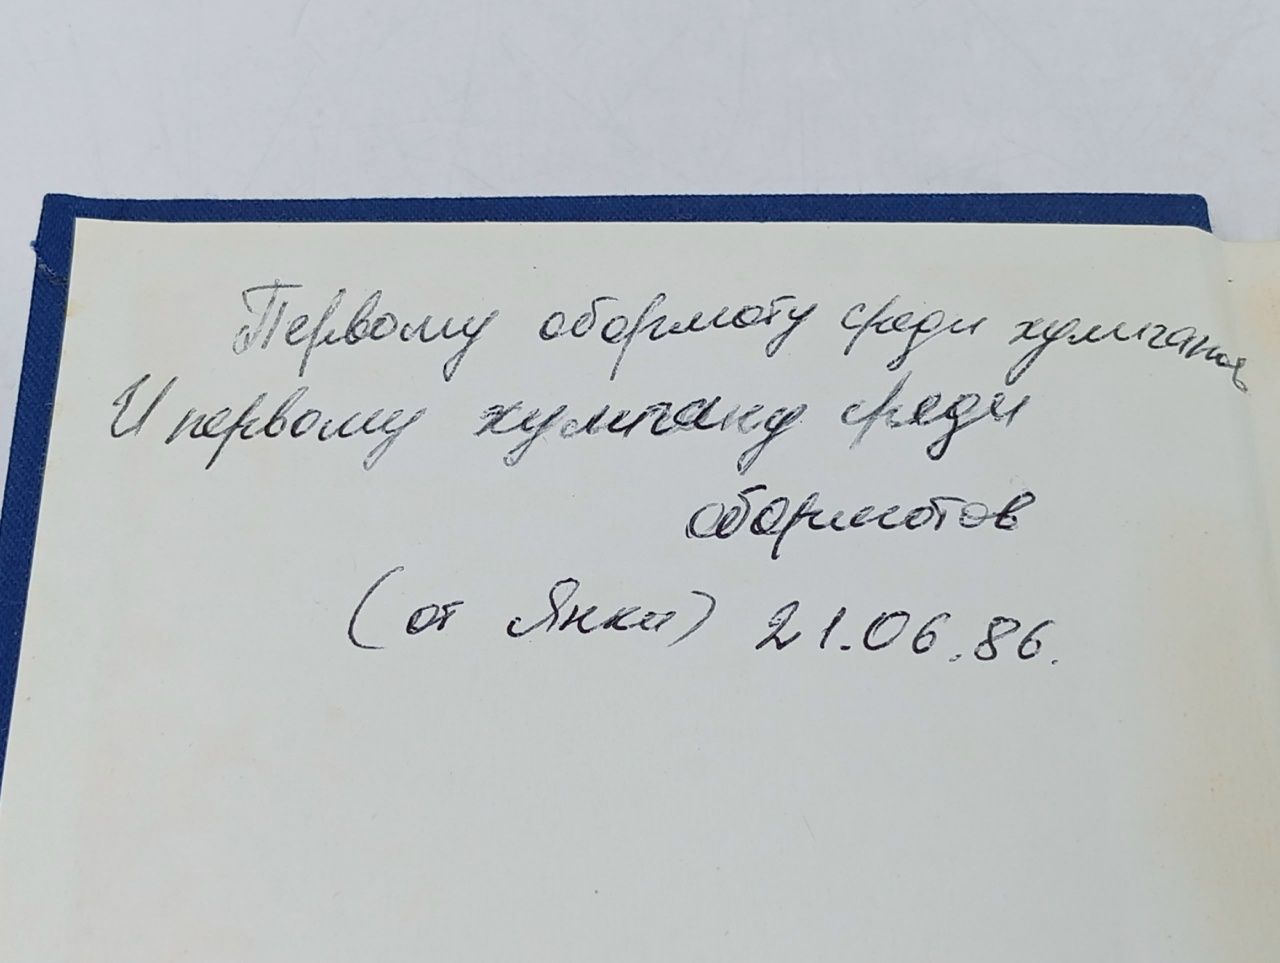 Первому обормоту среди хулиганов
И первому хулигану среди
обормотов
(от Янки) 21.06.86.